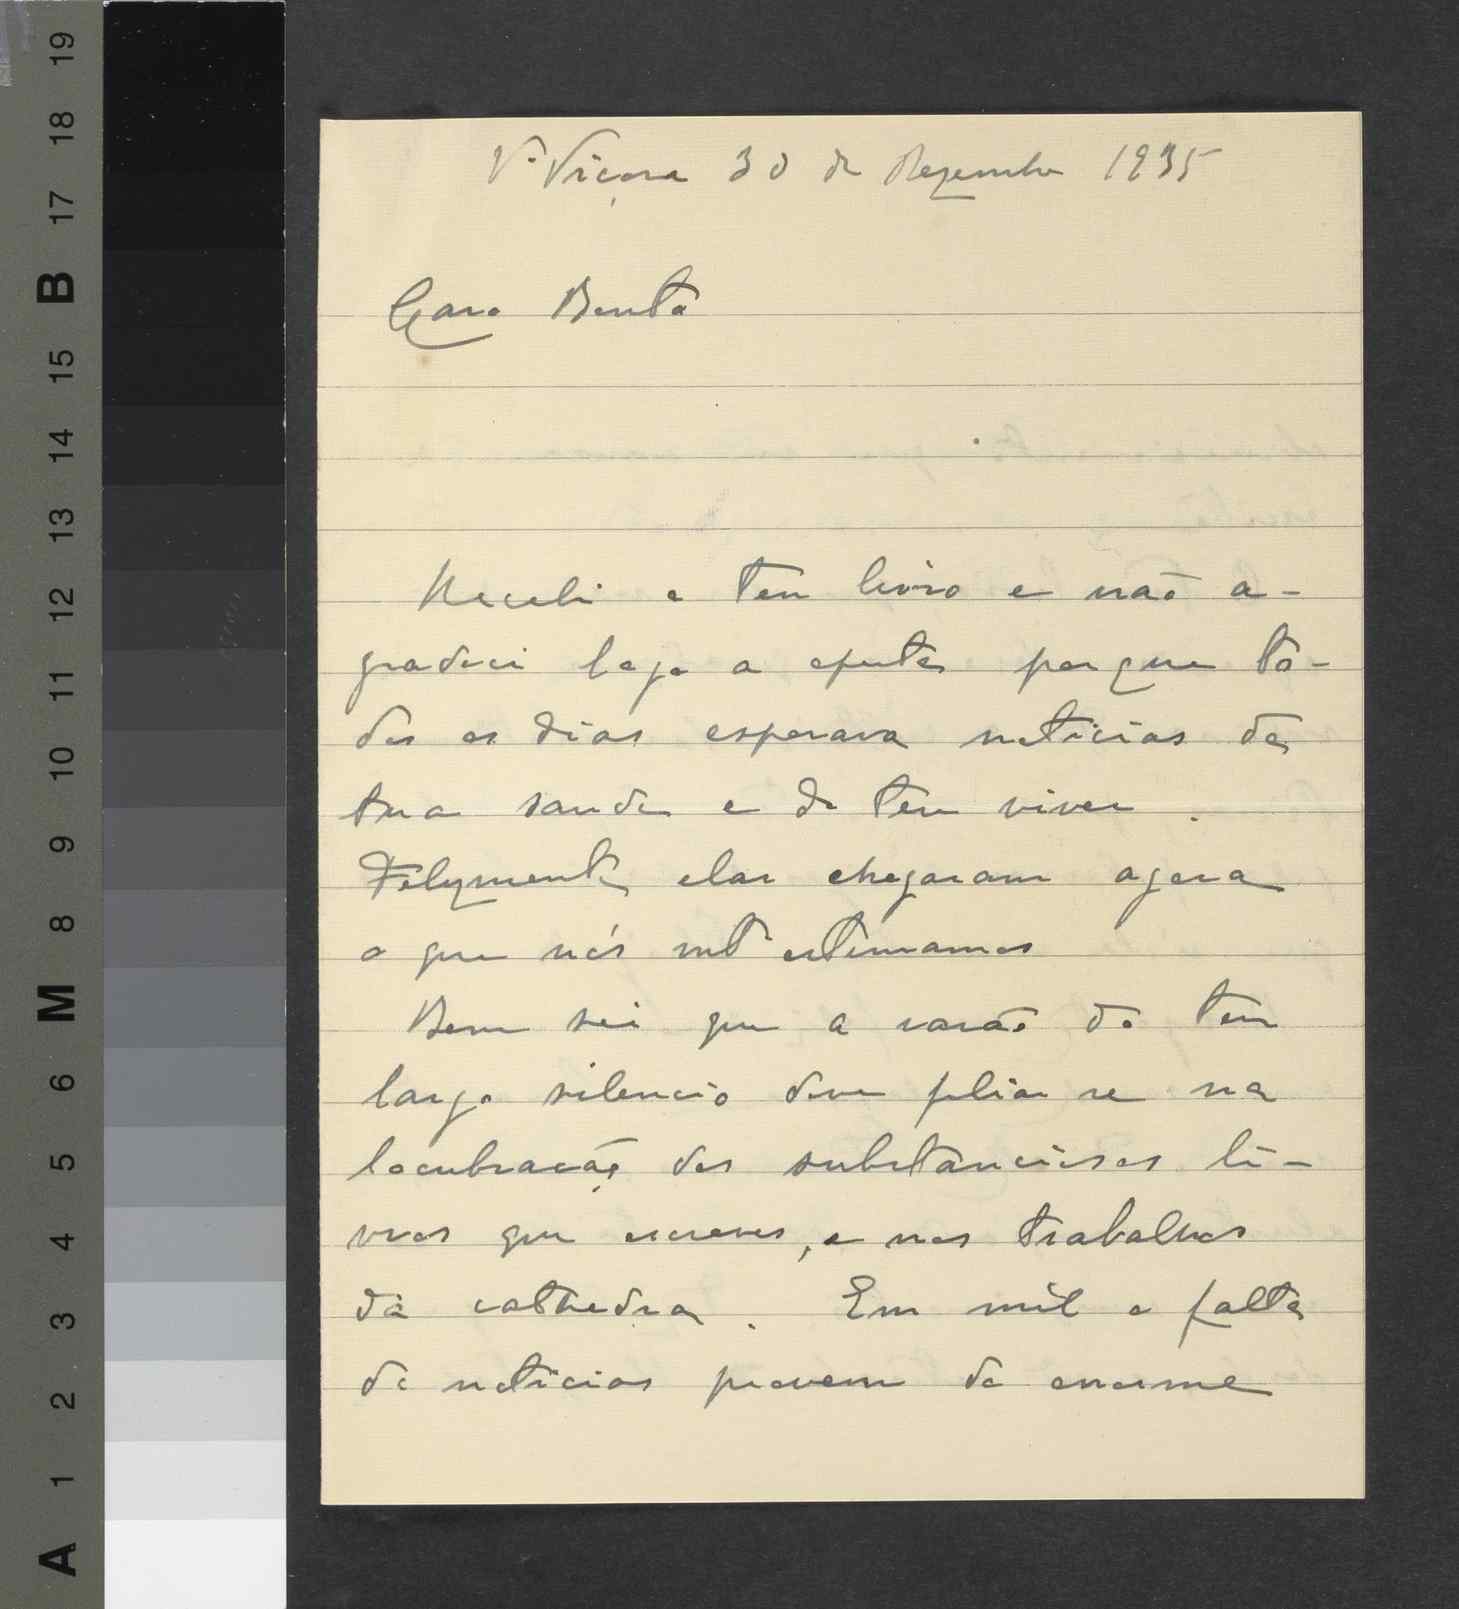 19
18
17
B
15
14
13
12
11
10
9
8
M
6
5
4
3
2
1
A
Vª Viçosa 30 de Dezembro 1935
Caro Bento
Recebi o teu livro e não a-
gradeci logo a oferta porque to-
dos os dias esperava noticias da
tua saude e do teu viver.
Felizmente elas chegaram agora
o que nós mtº estimamos
Bem sei que a rasão do teu
largo silencio deve filiar se na
locubração dos substanciosos li-
vros que escreves, e nos trabalhos
da cathedra. Em mil a falta
de noticias provem do enorme